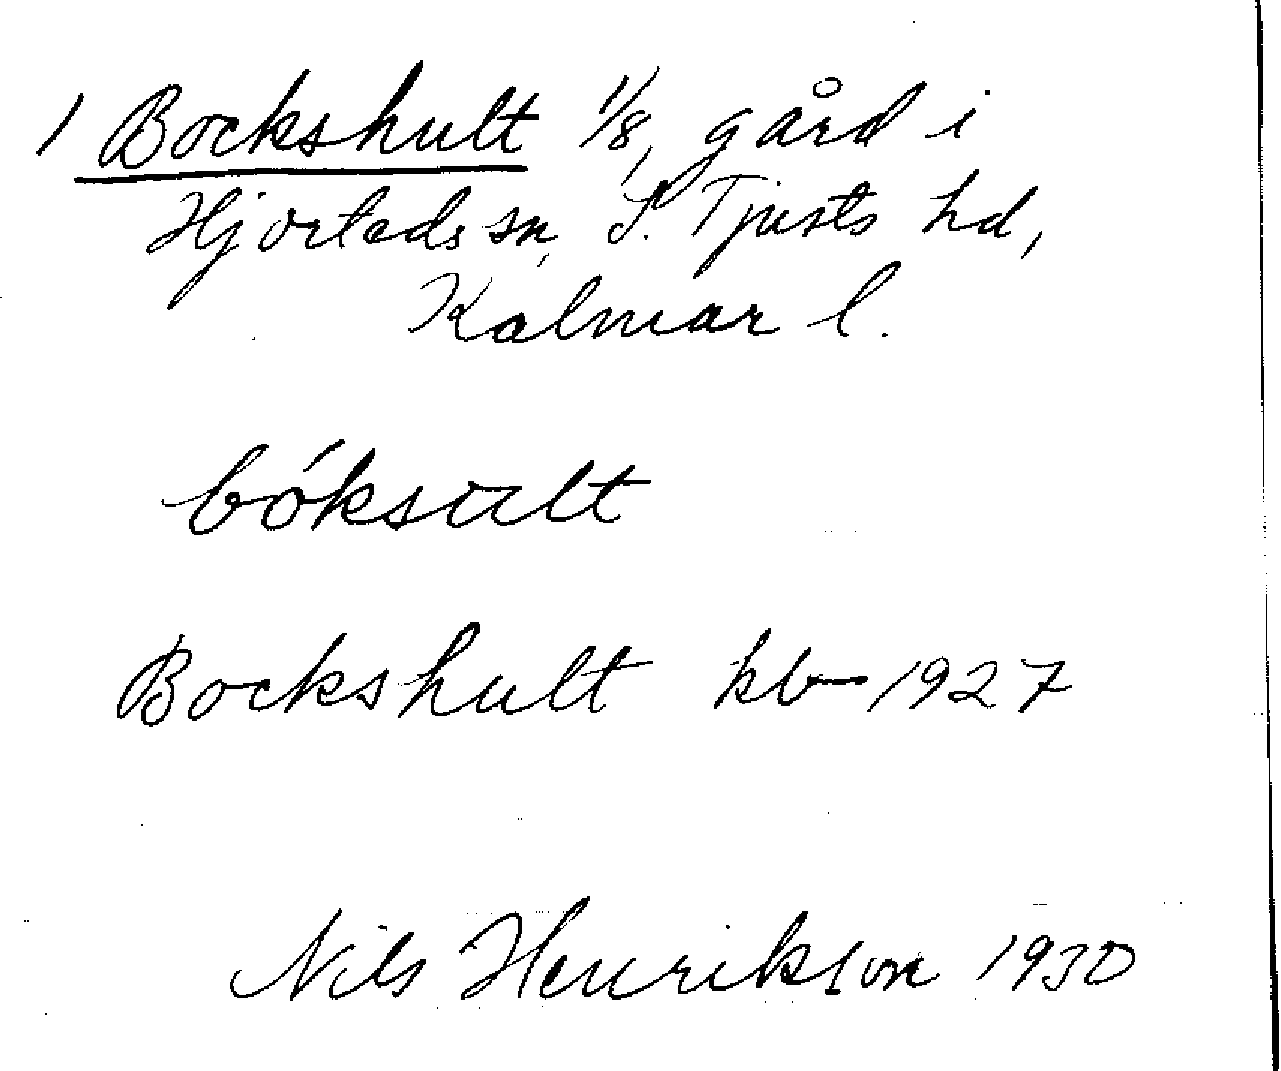 1 Bockshult 1/8, gård i
Hjorteds sn, S. Tjusts hd,
Kalmar l.
bóksult
Bockshult kb 1927
Nils Henrikson 1930